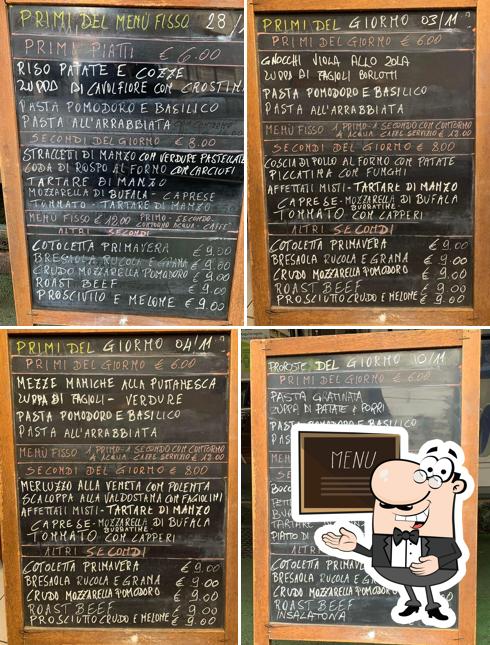 PRIMI DEL MENÙ FISSO 28/
PRIMI PIATTI € 6.00
RISO PATATE E COZZE
ZUPPA DI CAVOLFIORE CON CROSTINI
PASTA POMODORO E BASILICO
PASTA ALL'ARRABBIATA
SECONDI DEL GIORNO € 8.00
STRACCETTI DI MANZO CON VERDURE PASTELLATE
CODA DI ROSPO AL FORNO CON CARCIOFI
TARTARE DI MANZO
MOZZARELLA DI BUFALA - CAPRESE
TOMMATO - TARTARE DI MANZO
MENÙ FISSO € 12.00 PRIMO - SECONDO -
CONTORNO ACQUA - CAFFÈ
ALTRI SECONDI
COTOLETTA PRIMAVERA € 9.00
BRESAOLA RUCOLA E GRANA € 9.00
CRUDO MOZZARELLA POMODORO € 9.00
ROAST BEEF € 9.00
PROSCIUTTO E MELONE € 9.00
PRIMI DEL GIORNO 03/11
PRIMI DEL GIORNO € 6.00
GNOCCHI VIOLA ALLO ZOLA
ZUPPA DI FAGIOLI BORLOTTI
PASTA POMODORO E BASILICO
PASTA ALL'ARRABBIATA
MENÙ FISSO 1 PRIMO - 1 SECONDO CON CONTORNO
ACQUA CAFFÈ SERVIZIO € 12.00
SECONDI DEL GIORNO € 8.00
COSCIA DI POLLO AL FORNO CON PATATE
PICCATINA CON FUNGHI
AFFETTATI MISTI - TARTARE DI MANZO
CAPRESE - MOZZARELLA DI BUFALA
BURRATINE -
TOMMATO CON CAPPERI
ALTRI SECONDI
COTOLETTA PRIMAVERA € 9.00
BRESAOLA RUCOLA E GRANA € 9.00
CRUDO MOZZARELLA POMODORO € 9.00
ROAST BEEF € 9.00
PROSCIUTTO CRUDO E MELONE € 9.00
PRIMI DEL GIORNO 04/11
PRIMI DEL GIORNO € 6.00
MEZZE MANICHE ALLA PUTTANESCA
ZUPPA DI FAGIOLI - VERDURE
PASTA POMODORO E BASILICO
PASTA ALL'ARRABBIATA
MENÙ FISSO 1 PRIMO - 1 SECONDO CON CONTORNO
ACQUA CAFFÈ SERVIZIO € 12.00
SECONDI DEL GIORNO € 8.00
MERLUZZO ALLA VENETA CON POLENTA
SCALOPPA ALLA VALDOSTANA CON FAGIOLINI
AFFETTATI MISTI - TARTARE DI MANZO
CAPRESE - MOZZARELLA DI BUFALA
BURRATINE -
TOMMATO CON CAPPERI
ALTRI SECONDI
COTOLETTA PRIMAVERA € 9.00
BRESAOLA RUCOLA E GRANA € 9.00
CRUDO MOZZARELLA POMODORO € 9.00
ROAST BEEF € 9.00
PROSCIUTTO CRUDO E MELONE € 9.00
PROPOSTE DEL GIORNO 10/11
PRIMI DEL GIORNO € 6.00
PASTA GRATINATA
ZUPPA DI PATATE E PORRI
PASTA POMODORO E BASILICO
PASTA
MENU
TARTARE
PIATTO DI
ALTRI
COTOLETTA PRIMAV
BRESAOLA RUCOLA E GRAN
CRUDO MOZZARELLA POMODORO
ROAST BEEF
INSALATONA